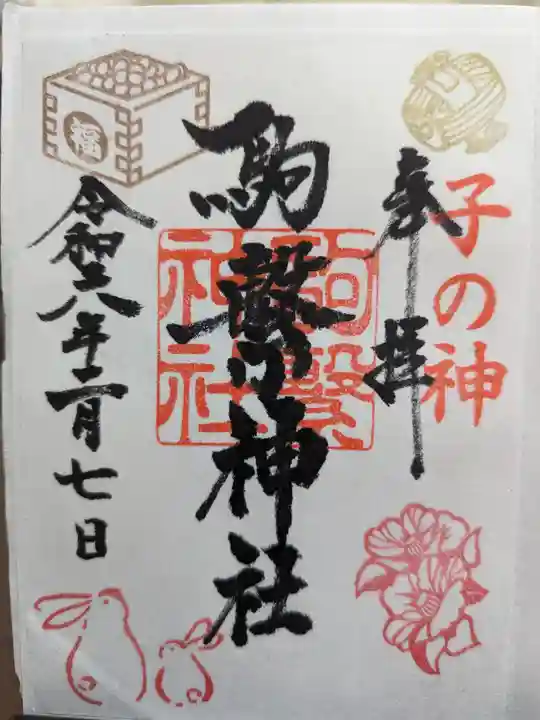 子の神
奉拝
駒繋神社
駒繋
神社
令和八年二月七日
福